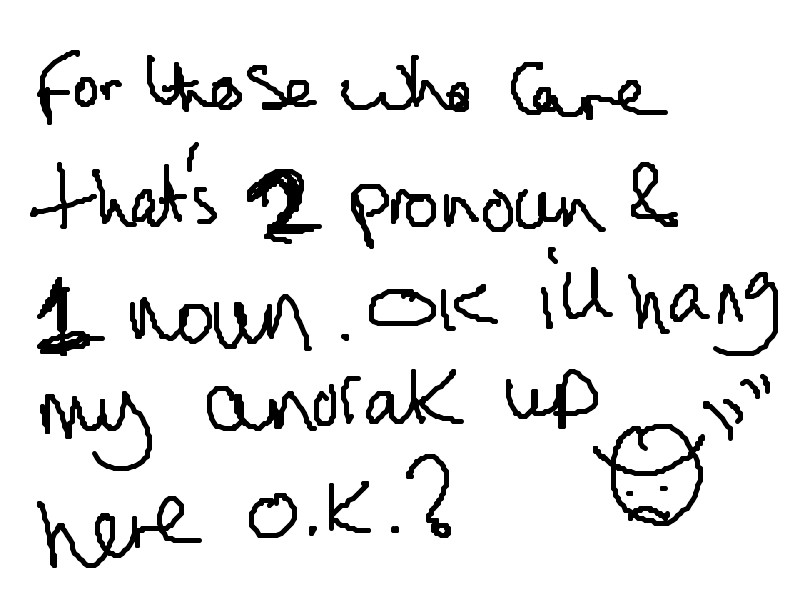 For those who care
that's 2 pronoun &
1 noun. OK i'll hang
my anorak up
here O.K.?